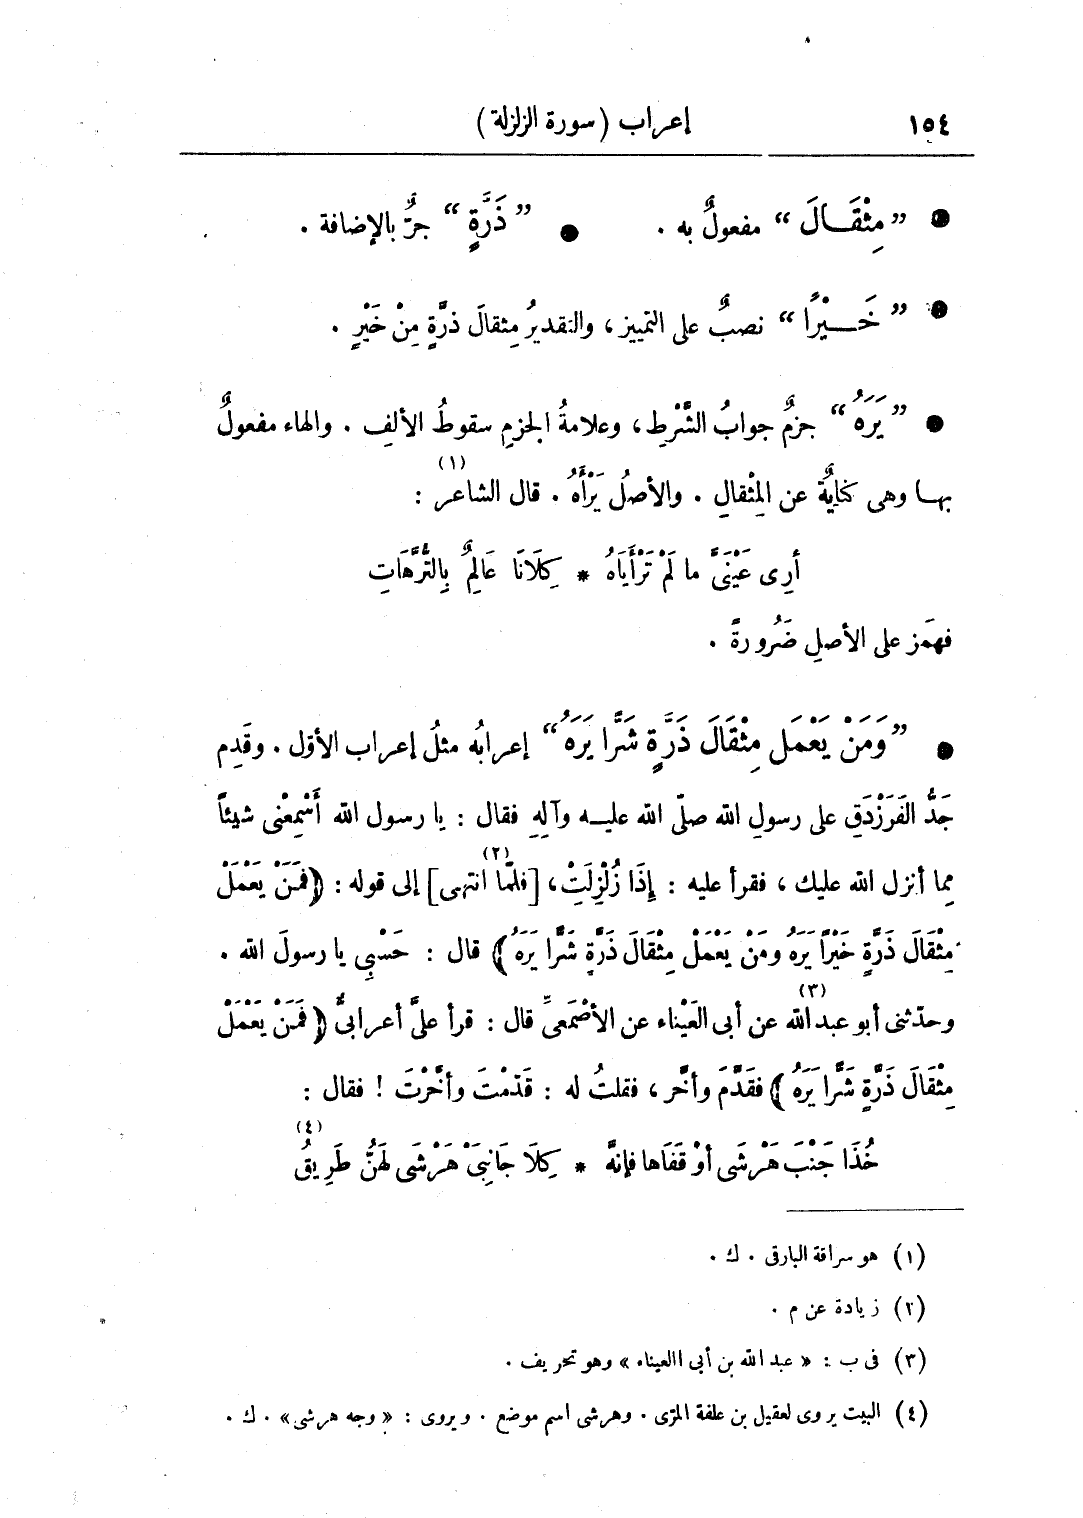 ١٥٤ إعراب (سورة الزلزلة)
● ”مِثْقَــالَ“ مفعولٌ به . ● ”ذَرَّةٍ“ جرٌّ بالإضافة .
● ”خَــيْرًا“ نصبٌ على التمييز، والتقديرُ مِثقالَ ذرَّةٍ مِنْ خَيْرٍ .
● ”يَرَهُ“ جزمٌ جوابُ الشَّرْطِ، وعلامةُ الجزمِ سقوطُ الألفِ . والهاء مفعولٌ
بهـا وهى كنايةٌ عن المِثْقالِ . والأصلُ يَرْأَهُ . قال الشاعر (١) :
أرِى عَيْنَىَّ ما لَمْ تَرْأَيَاهُ * كِلَانَا عَالِمٌ بِالتُّرَّهَاتِ
فهمَز على الأصلِ ضَرُورةً .
● ”وَمَنْ يَعْمَل مِثْقَالَ ذَرَّةٍ شَرًّا يَرَهُ“ إعرابُه مثلُ إعراب الأوّل . وقَدِم
جَدُّ الفَرَزْدَقِ على رسولِ الله صلّى الله عليــه وآلِهِ فقال : يا رسول الله أَسْمِعْنى شيئاً
مِما أنزل الله عليك ، فقرأ عليه : إِذَا زُلْزِلَتْ، [فلمّا انتهى] (٢) إلى قوله : ﴿فمَنْ يَعْمَلْ
مِثْقَالَ ذَرَّةٍ خَيْرًا يَرَهُ ومَنْ يَعْمَلْ مِثْقَالَ ذَرَّةٍ شَرًّا يَرَهُ﴾ قال : حَسْبِى يا رسولَ الله .
وحدّثنى أبو عبد الله (٣) عن أبى العَيْناء عن الأصْمَعىِّ قال : قرأ علىَّ أعرابىٌّ ﴿فَمَنْ يَعْمَلْ
مِثْقَالَ ذَرَّةٍ شَرًّا يَرَهُ﴾ فقَدَّمَ وأخَّر ، فقلتُ له : قَدّمْتَ وأخَّرْتَ ! فقال :
خُذَا جَنْبَ هَرْشَى أوْ قَفَاها فإنهَّ * كِلَا جَانِبَىْ هَرْشَى لَهَنَّ طَرِيقُ (٤)
(١) هو سراقة البارقى . ك .
(٢) زيادة عن م .
(٣) فى ب : « عبد الله بن أبى االعيناء » وهو تحريف .
(٤) البيت يروى لعقيل بن علفة المرّى . وهرشى اسم موضع . ويروى : « وجه هرشى» . ك .